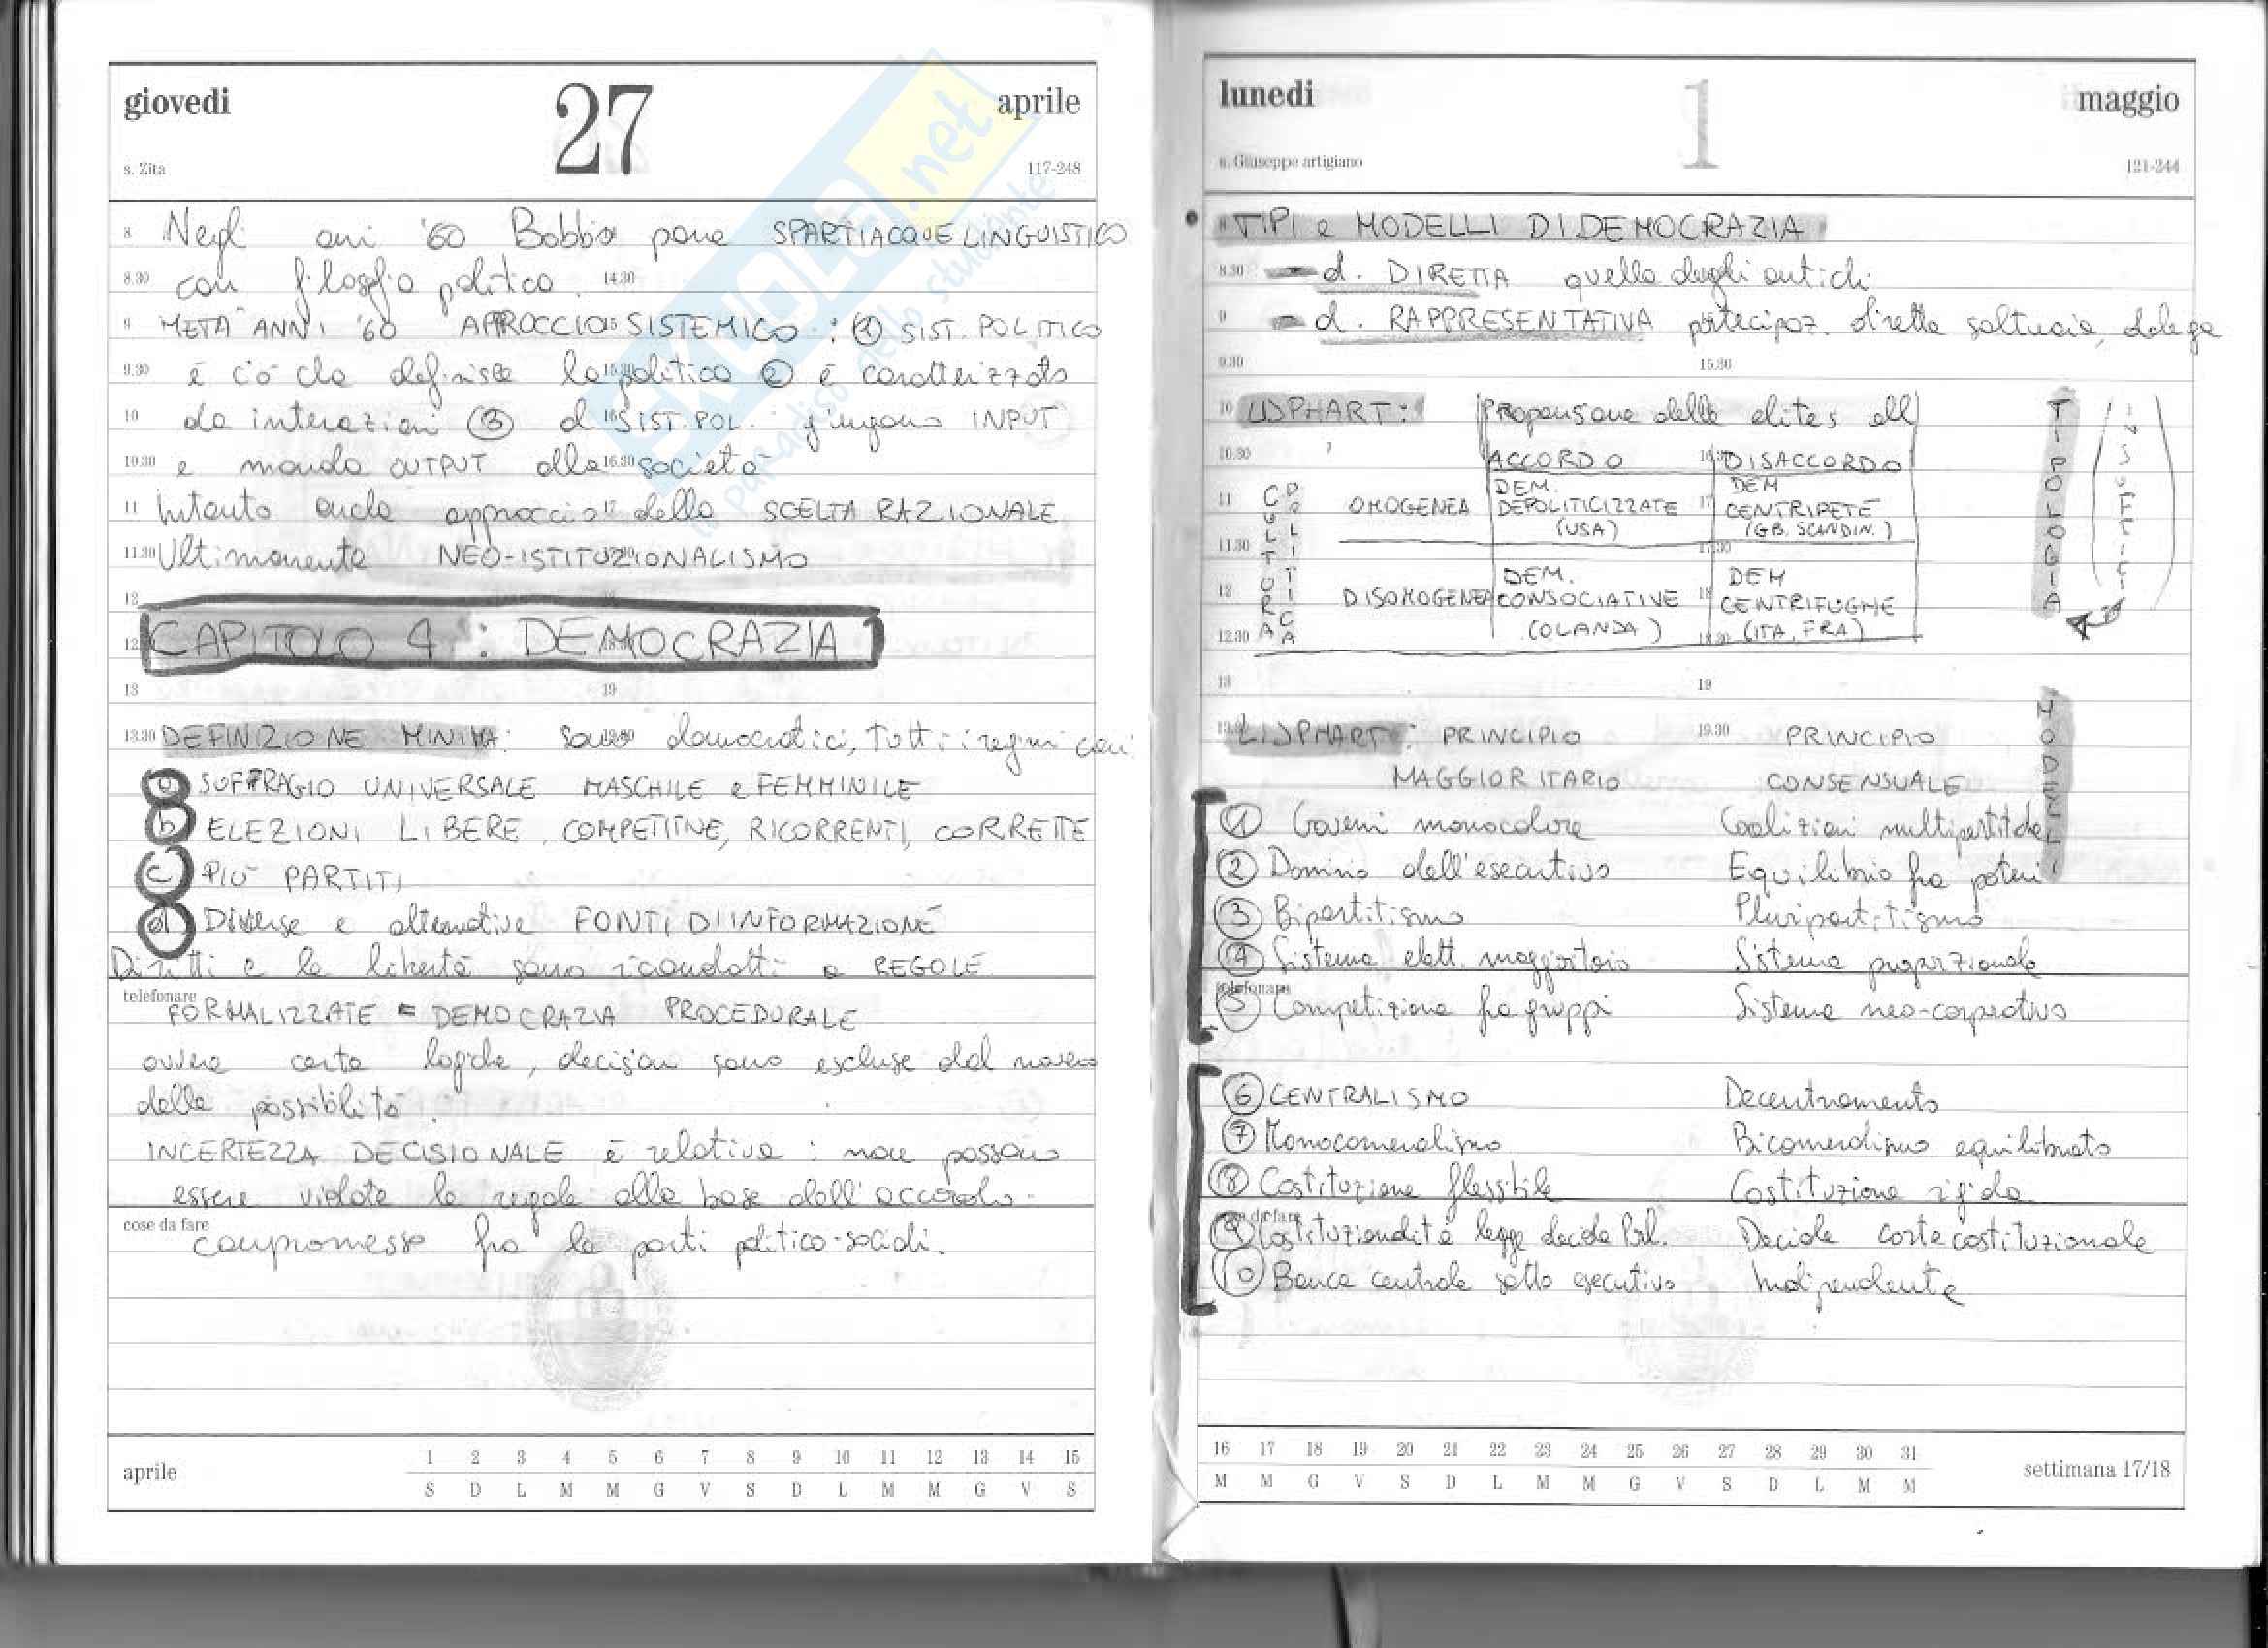 giovedi 27 aprile
s. Zita 117-248
8 Negli anni '60 Bobbio pone SPARTIACQUE LINGUISTICO
8.30 con filosofia politica. 14.30
9 METÀ ANNI '60 APPROCCIO SISTEMICO: ① SIST. POLITICO
9.30 è ciò che definisce la politica ② è caratterizzato
10 da interazioni ③ al SIST. POL. giungono INPUT
10.30 e manda OUTPUT alla 16.30 società
11 Intanto anche approccio 17 della SCELTA RAZIONALE
11.30 Ultimamente NEO-ISTITUZIONALISMO
12
12 CAPITOLO 4: DEMOCRAZIA
13 19
13.30 DEFINIZIONE MINIMA: sono democratici, tutti i regimi con:
a SUFFRAGIO UNIVERSALE MASCHILE e FEMMINILE
b ELEZIONI LIBERE, COMPETITIVE, RICORRENTI, CORRETTE
c PIÙ PARTITI
d Diverse e alternative FONTI DI INFORMAZIONE
Diritti e le libertà sono ricondotti a REGOLE
telefonare
FORMALIZZATE = DEMOCRAZIA PROCEDURALE
ovvero certe logiche, decisioni sono escluse dal novero
delle possibilità.
INCERTEZZA DECISIONALE è relativa: non possono
essere violate le regole alla base dell'accordo-
cose da fare
compromesso fra le parti politico-sociali.
aprile
1 2 3 4 5 6 7 8 9 10 11 12 13 14 15
S D L M M G V S D L M M G V S
lunedi 1 maggio
s. Giuseppe artigiano 121-244
"TIPI e MODELLI DI DEMOCRAZIA"
8.30 - d. DIRETTA quella degli antichi
9 - d. RAPPRESENTATIVA partecipaz. diretta saltuaria, delega
9.30 15.30
10 LIJPHART: Propensione delle elites all
10.30 ACCORDO DISACCORDO
11 CULTURA POLITICA
OMOGENEA DEM. DEPOLITICIZZATE (USA) DEM CENTRIPETE (GB, SCANDIN.)
11.30 17.30
12 DISOMOGENEA DEM. CONSOCIATIVE (OLANDA) DEM CENTRIFUGHE (ITA, FRA)
12.30 18.30
TIPOLOGIA
13 19
LIJPHART: PRINCIPIO 19.30 PRINCIPIO
MAGGIORITARIO CONSENSUALE
MODELLI
① Governi monocolore Coalizioni multipartitiche
② Dominio dell'esecutivo Equilibrio fra poteri
③ Bipartitismo Pluripartitismo
④ Sistema elett. maggioritario Sistema proporzionale
telefonare
⑤ Competizione fra gruppi Sistema neo-corporativo
⑥ CENTRALISMO Decentramento
⑦ Monocameralismo Bicameralismo equilibrato
⑧ Costituzione flessibile Costituzione rigida
cose da fare
⑨ Costituzionalità legge decide Parl. Decide corte costituzionale
⑩ Banca centrale sotto esecutivo Indipendente
16 17 18 19 20 21 22 23 24 25 26 27 28 29 30 31
M M G V S D L M M G V S D L M M
settimana 17/18
SKUOLA.net
il paradiso dello studente